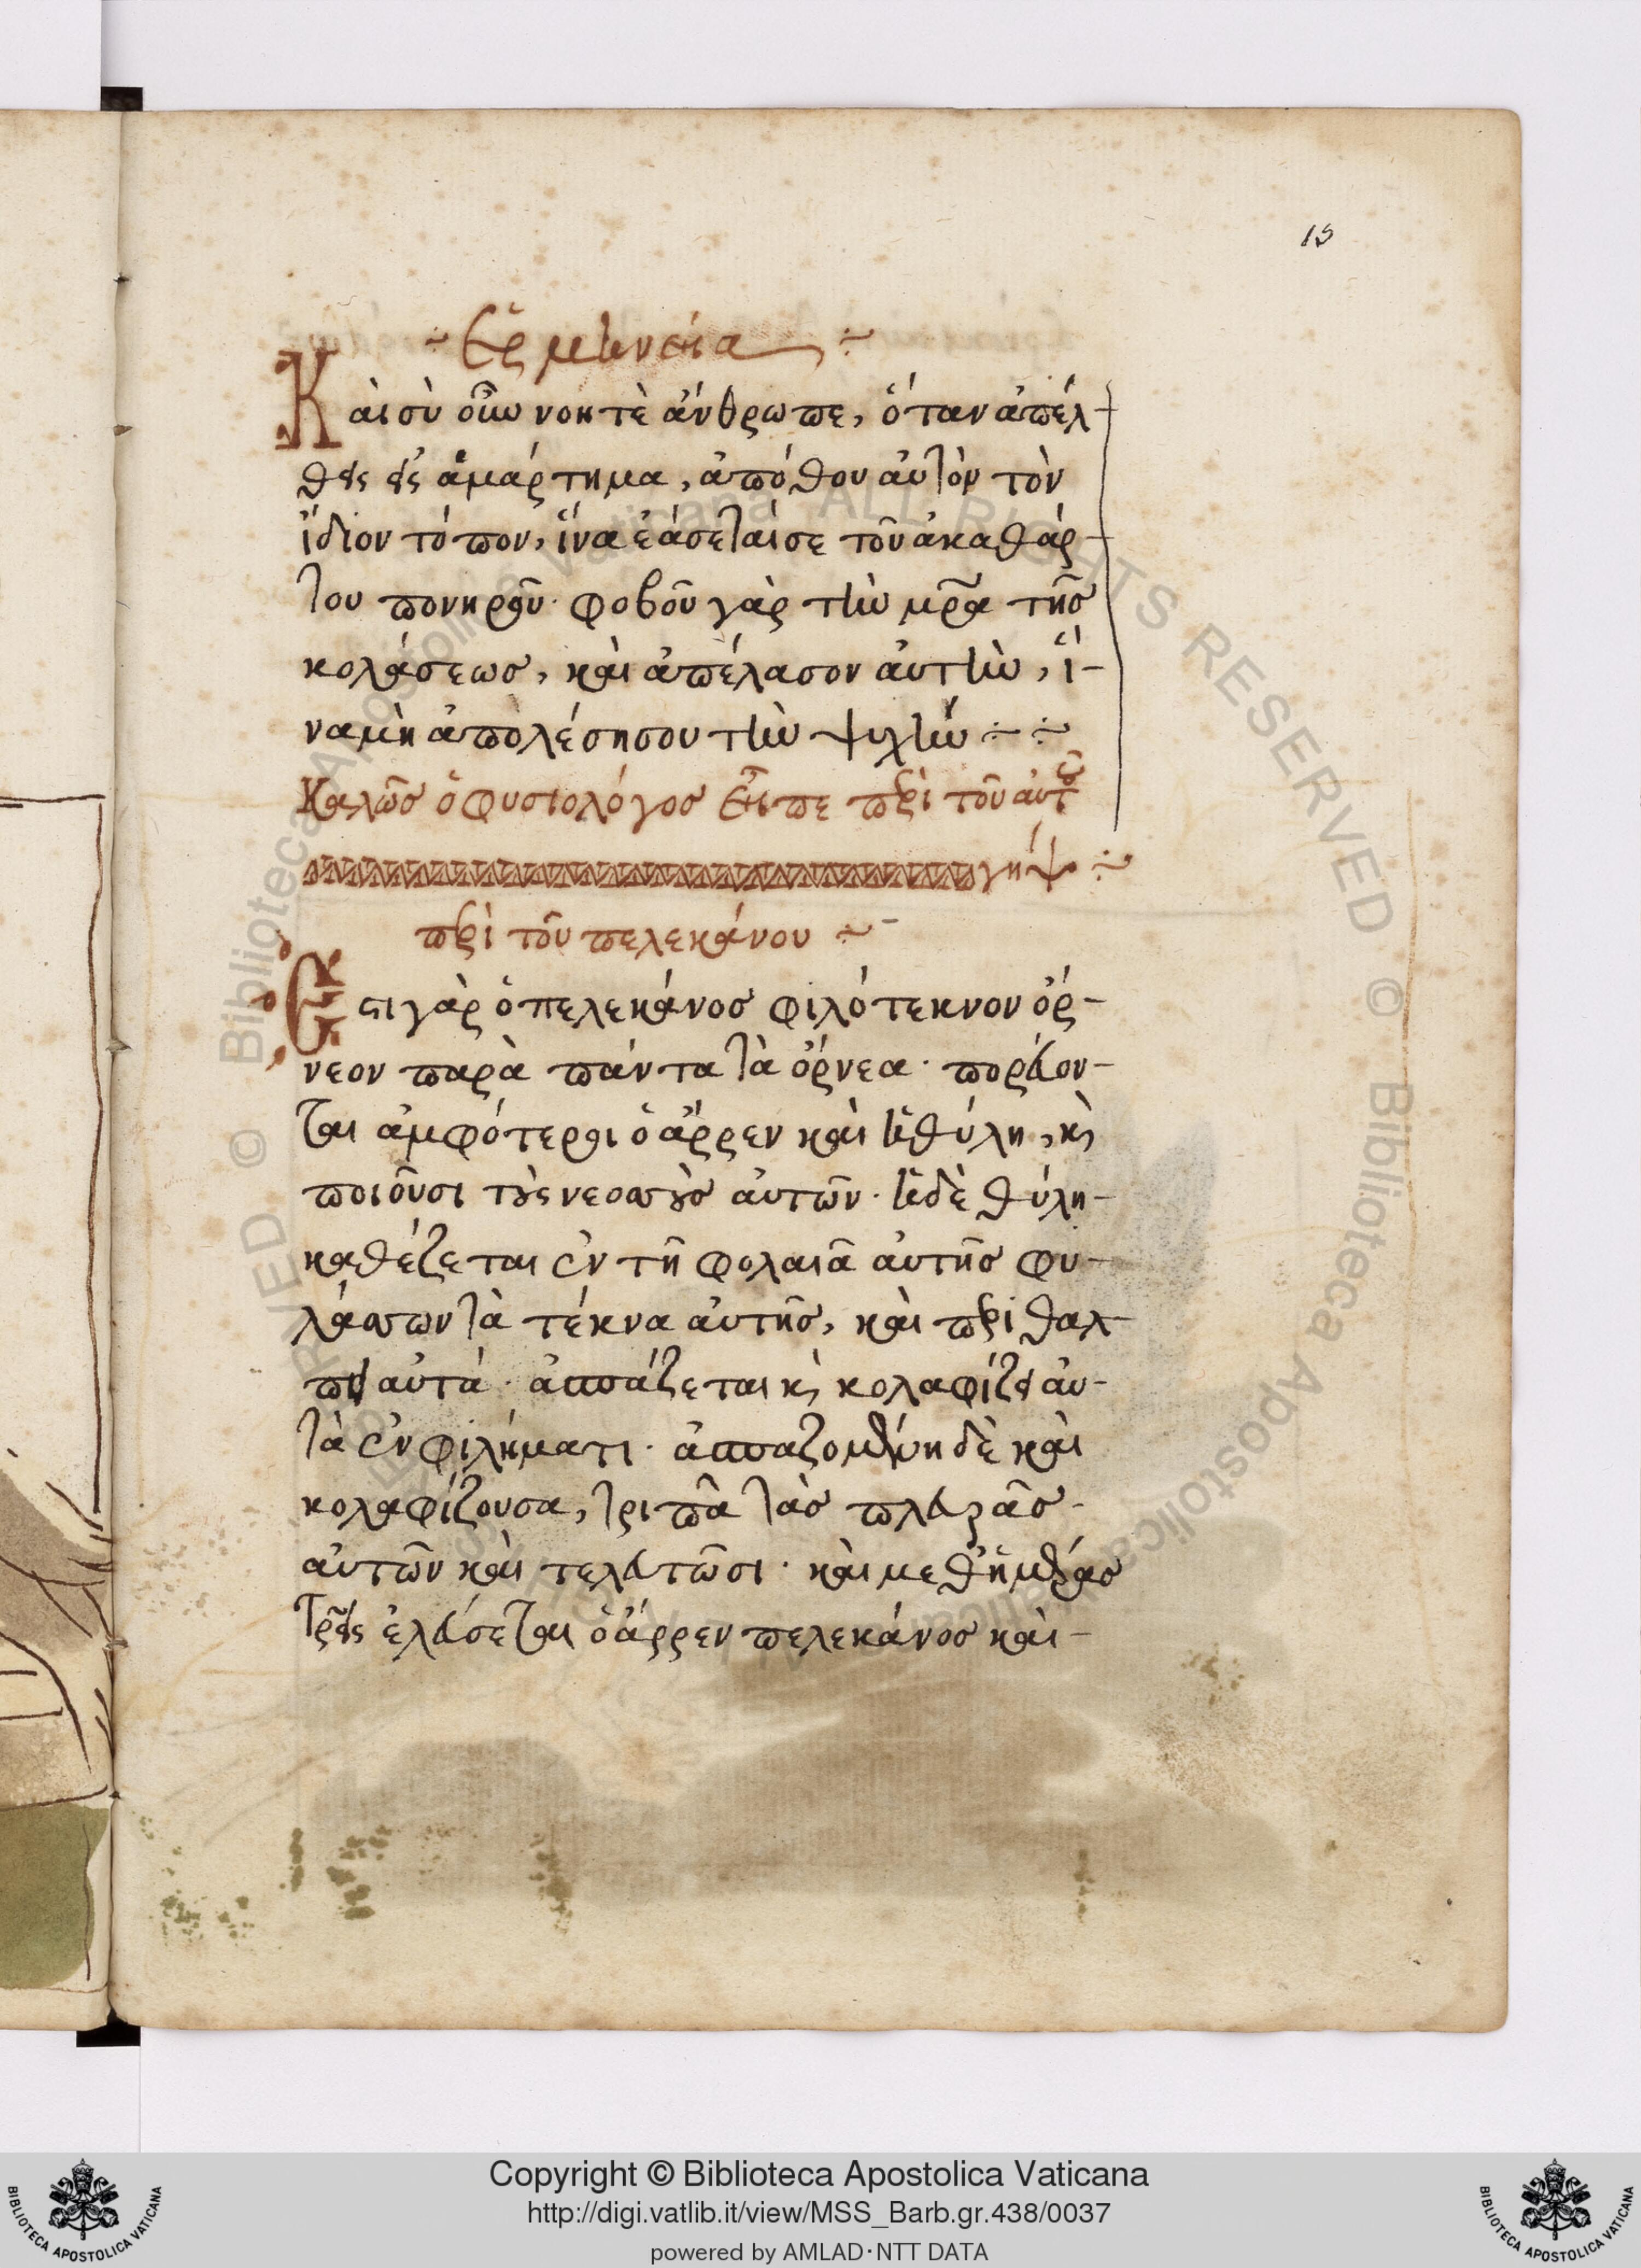 15
Ἑρμηνεία
Καὶ σὺ οὖν νοητὲ ἄνθρωπε, ὅταν ἀπέλ-
θεις εἰς ἁμάρτημα, ἀπόθου αὐτὸν τὸν
ἴδιον τόπον, ἵνα ἐάσεταί σε τοῦ ἀκαθάρ-
του πονηροῦ· φοβοῦ γὰρ τὴν μρ̃α τῆς
κολάσεως, καὶ ἀπέλασον αὐτὴν, ἵ-
να μὴ ἀπολέσης σου τὴν ψυχήν
Καλῶς ὁ φυσιολόγος εἶπε περὶ τοῦ αὐτοῦ
γήψ
περὶ τοῦ πελεκάνου
Ἔστι γὰρ ὁ πελεκάνος φιλότεκνον ὄρ-
νεον παρὰ πάντα τὰ ὄρνεα· πορεύον-
ται ἀμφότεροι ὁ ἄρρεν καὶ ἡ θύλη, κὶ
ποιοῦσι τοὺς νεοσσοὺς αὐτῶν· ἡ δὲ θύλη
καθέζεται ἐν τῆ φολαιᾶ αὐτῆς φυ-
λάσσων τὰ τέκνα αὐτῆς, καὶ περιθαλ-
πει αὐτά· ἀσπάζεται κὶ κολαφίζει αὐ-
τὰ ἐν φιλήματι· ἀσπαζομένη δὲ καὶ
κολαφίζουσα, τριπᾶ τὰς πλευρᾶς
αὐτῶν καὶ τελευτῶσι· καὶ μεθ ἡμέρας
τρεῖς ἐλεύσεται ὁ ἄρρεν πελεκάνος καὶ
Copyright © Biblioteca Apostolica Vaticana
http://digi.vatlib.it/view/MSS_Barb.gr.438/0037
powered by AMLAD·NTT DATA
BIBLIOTECA APOSTOLICA VATICANA
BIBLIOTECA APOSTOLICA VATICANA